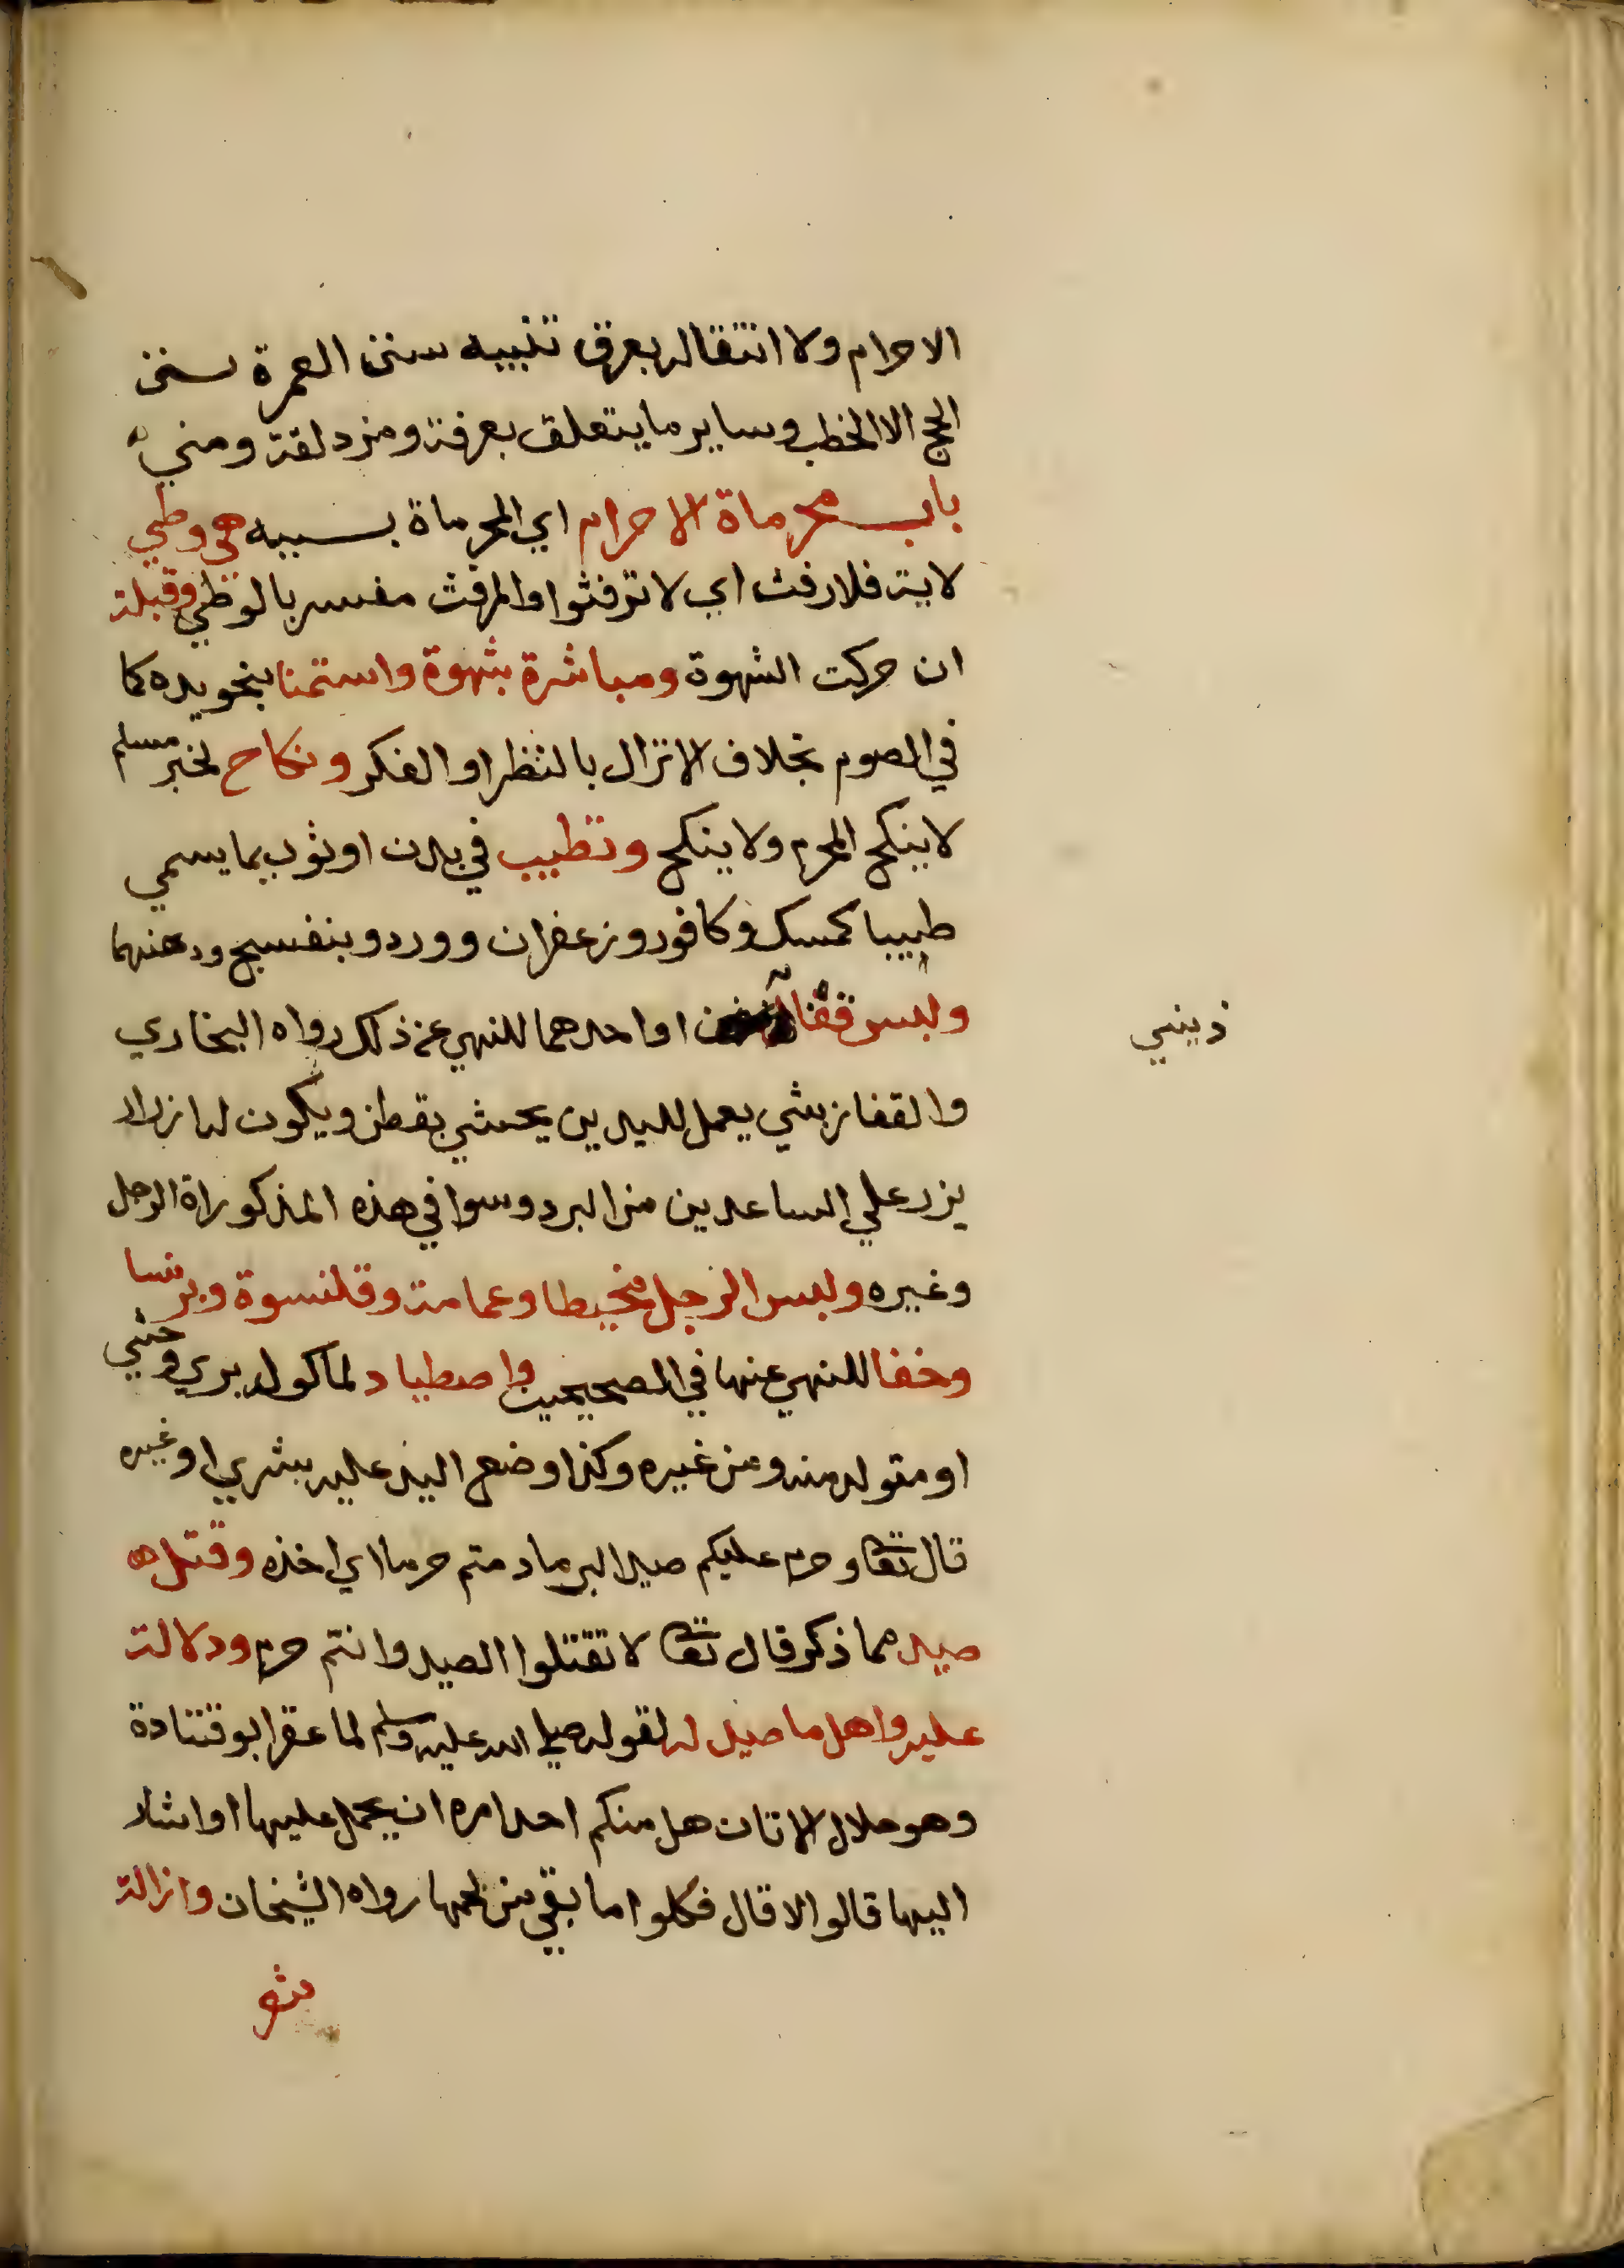 الاحرام ولا انتقاله بعرق تنبيه سنن العمرة سنن
الحج الا الخطب وساير ما يتعلق بعرفة ومزدلفة ومني
باب محرماة الاحرام اي المحرماة بسببه هي وطي
لاية فلا رفث اي لا ترفثوا والرفث مفسر بالوطي وقبلة
ان حركت الشهوة ومباشرة بشهوة واستمنا بنحو يده كما
في الصوم بخلاف الانزال بالنظر او الفكر ونكاح لخبر مسلم
لا ينكح المحرم ولا ينكح وتطييب في بدن او ثوب بما يسمي
طيبا كمسك وكافور وزعفران وورد وبنفسج ودهنهما
ولبس قفا او احدهما للنهي عن ذلك رواه البخاري
زينيي
والقفاز شي يعمل لليدين يحشي بقطن ويكون له ازرار
يزر علي الساعدين من البرد وسوا في هذه المذكوراة الرجل
وغيره ولبس الرجل مخيطا وعمامة وقلنسوة وبرنسا
وخفا للنهي عنها في الصحيحين واصطياد لماكول بري وحشي
او متولد منه ومن غيره وكذا وضع اليد عليه بشري او غيره
قال تعا وحرم عليكم صيد البر ما دمتم حرما اي اخذه وقتله
صيد مما ذكر قال تعا لا تقتلوا الصيد وانتم حرم ودلالة
عليه واهل ما صيد له لقوله صلي الله عليه وسلم لما عقر ابو قتتادة
وهو حلال الاتان هل منكم احد امره ان يحمل عليها او اشار
اليها قالوا لا قال فكلوا ما بقي من لحمها رواه الشيخان وازالة
شو